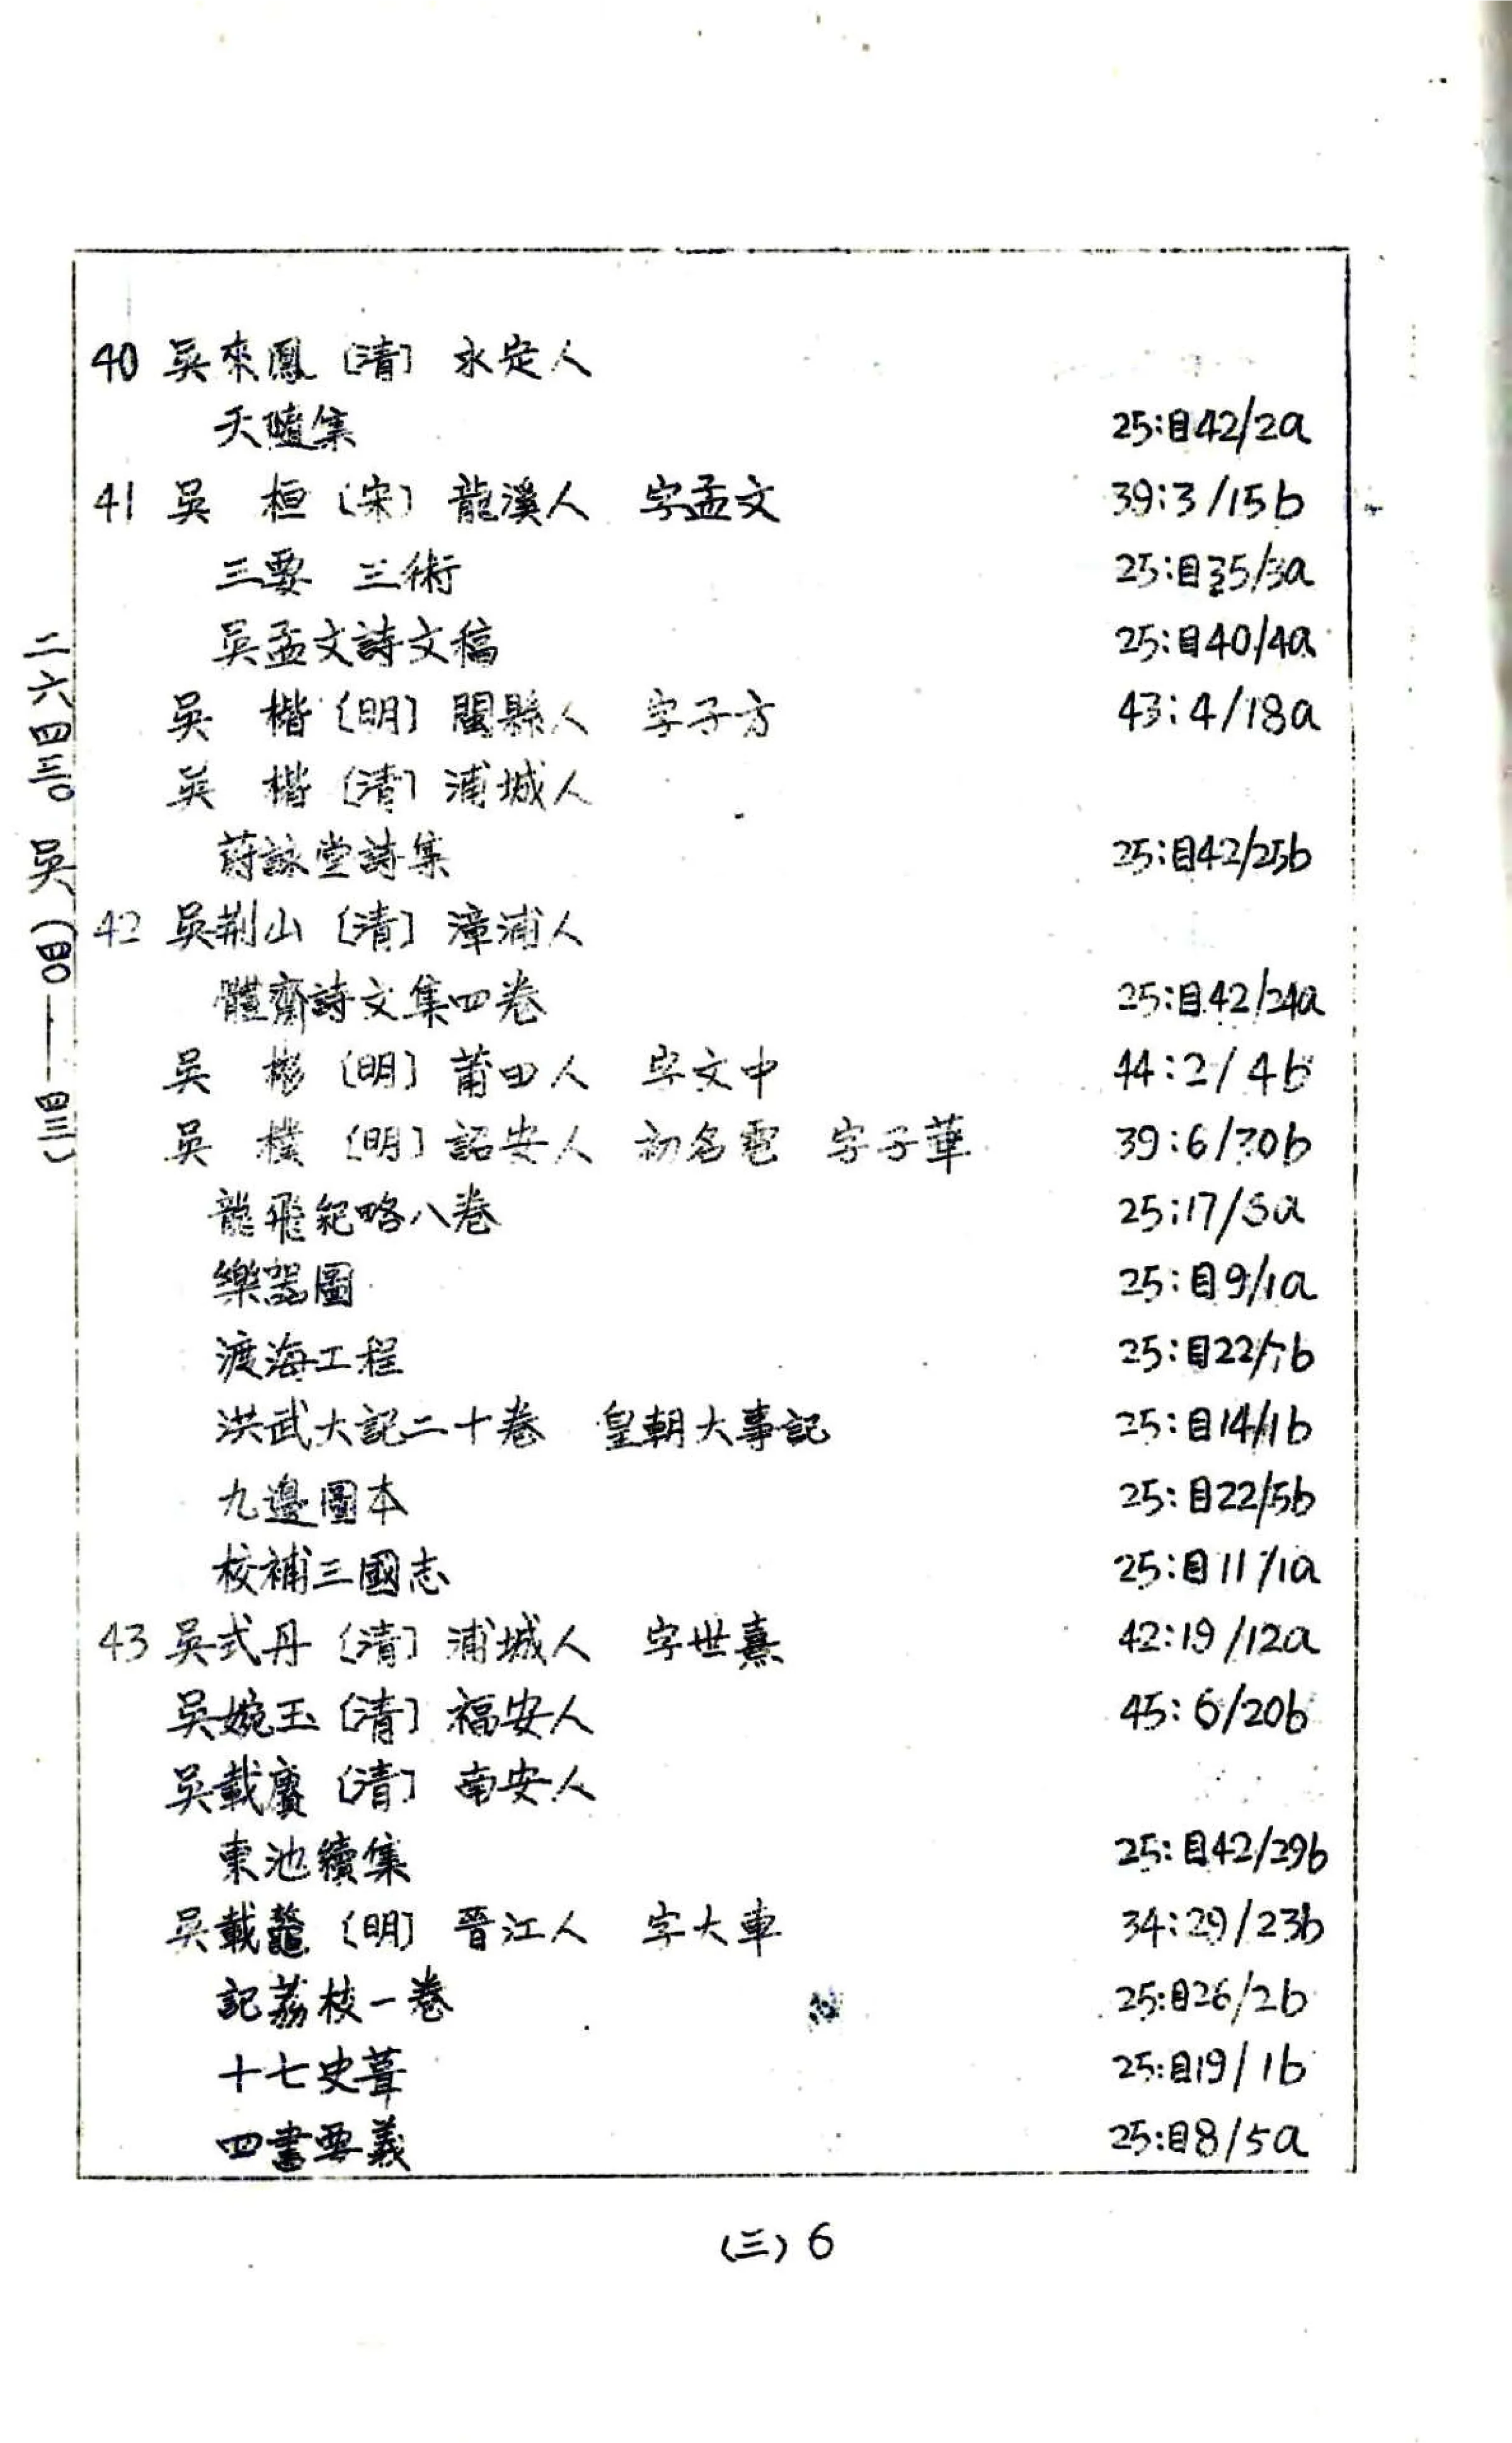 40 吳來鳳〔清〕永定人
天隨集 25:目42/2a
41 吳 桓〔宋〕龍溪人 字孟文 39:3/15b
三要 三術 25:目35/3a
吳孟文詩文稿 25:目40/4a
吳 楷〔明〕閩縣人 字子方 43:4/18a
吳 楷〔清〕浦城人
詩詠堂詩集 25:目42/25b
42 吳荆山〔清〕漳浦人
體齋詩文集四卷 25:目42/24a
吳 彬〔明〕莆田人 字文中 44:2/4b
吳 樸〔明〕詔安人 初名雹 字子華 39:6/30b
龍飛紀略八卷 25:17/5a
樂器圖 25:目9/1a
渡海工程 25:目22/7b
洪武大記二十卷 皇朝大事記 25:目14/1b
九邊圖本 25:目22/5b
校補三國志 25:目11/1a
43 吳式丹〔清〕浦城人 字世熹 42:19/12a
吳婉玉〔清〕福安人 45:6/20b
吳載賡〔清〕南安人
東池續集 25:目42/29b
吳載鼇〔明〕晉江人 字大車 34:29/23b
記荔枝一卷 25:目26/2b
十七史葺 25:目19/1b
四書要義 25:目8/5a
二六四三〇 吳(四〇——四三)
(三) 6